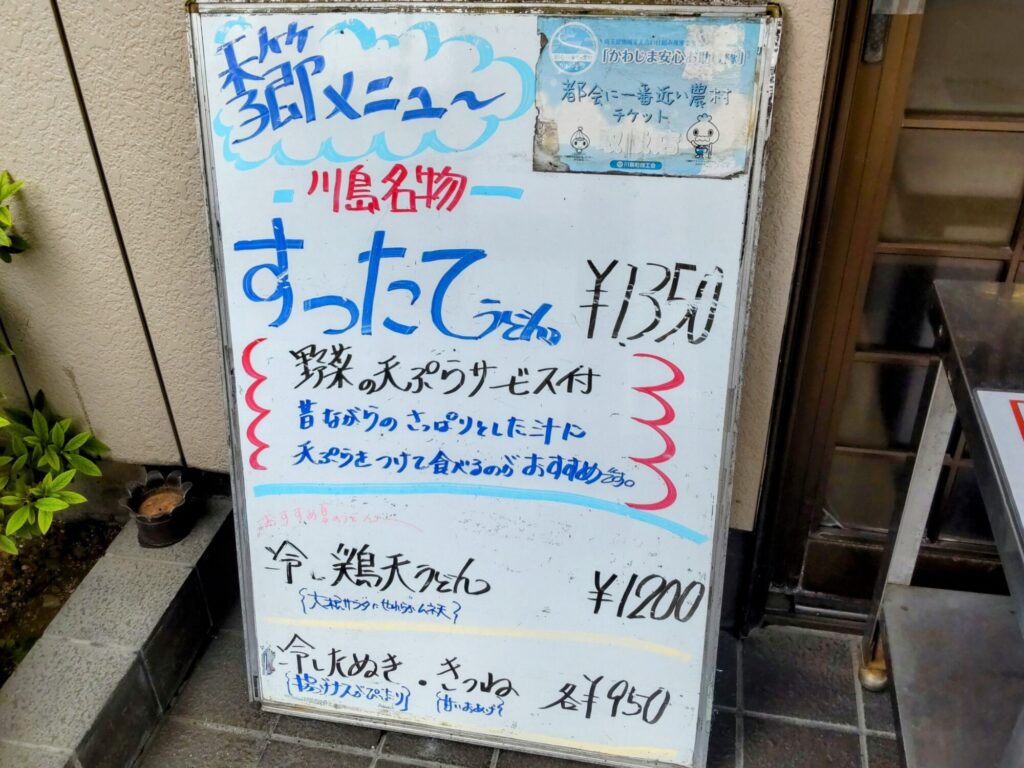 メニュー
「かわじま安心お
都会に一番近い農村
チケット
川島町商工会
川島名物
すったてうどん ¥1350
野菜の天ぷらサービス付
昔ながらのさっぱりとした汁に
天ぷらをつけて食べるのがおすすめです。
おすすめ
冷し鶏天うどん ¥1200
冷したぬき・きつね 各¥950
甘いおあげ